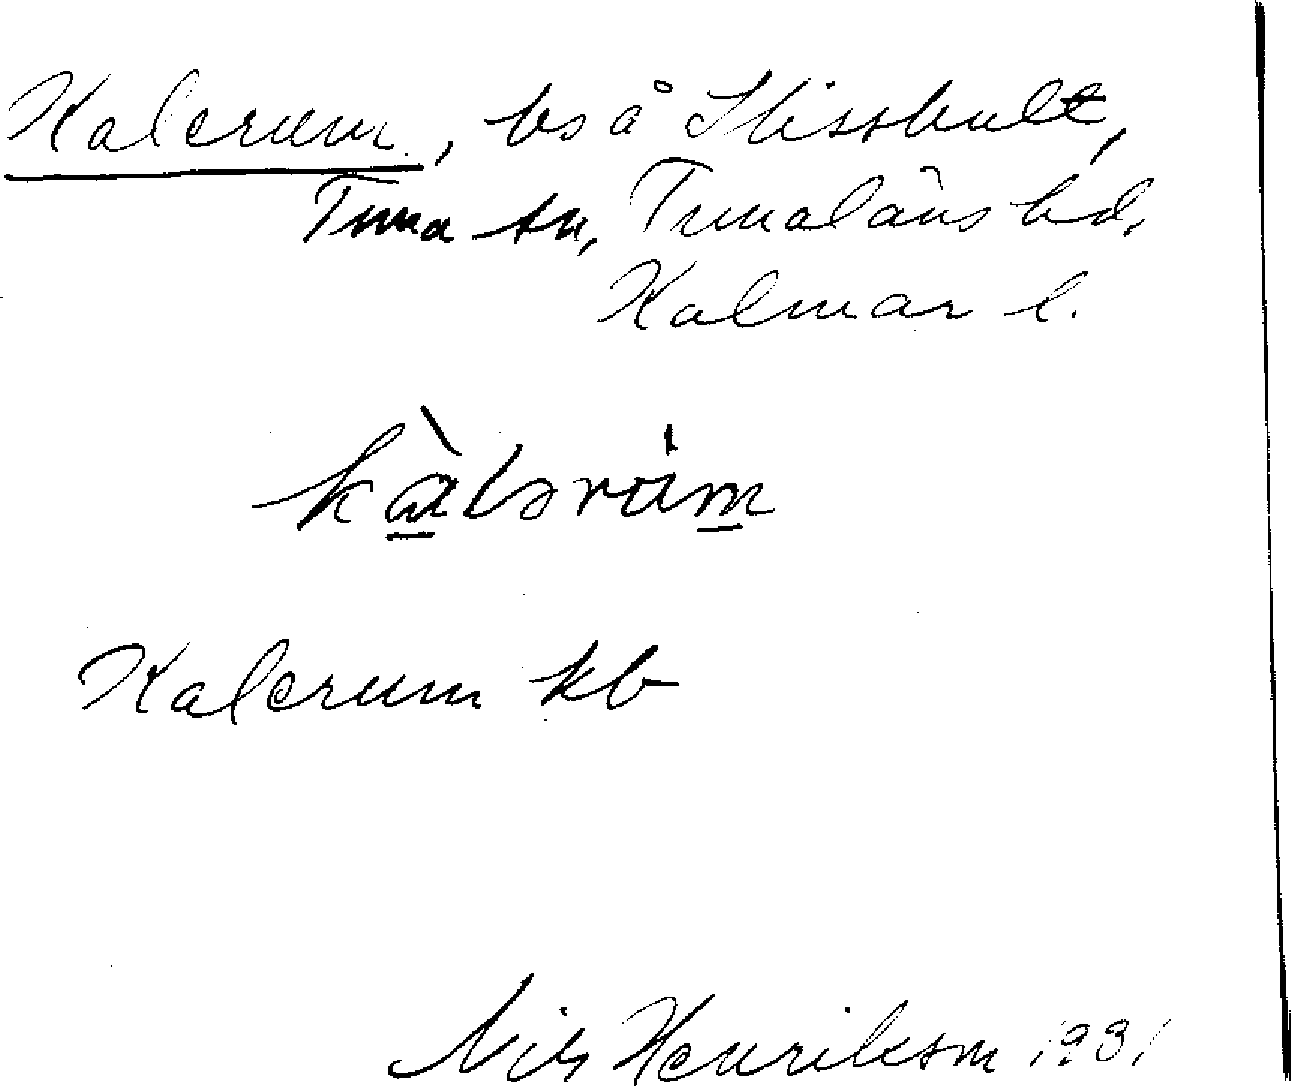 Kalerum, bs å Hissbult,
Tuna sn, Tunaläns hd,
Kalmar l.
kàlərùm
Kalerum kb
Nils Henrikson 1931